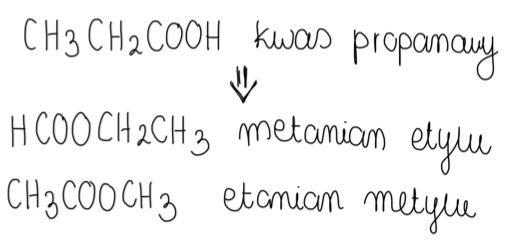 CH3CH2COOH kwas propanawy
⇓
HCOOCH2CH3 metanian etylu
CH3COOCH3 etanian metylu